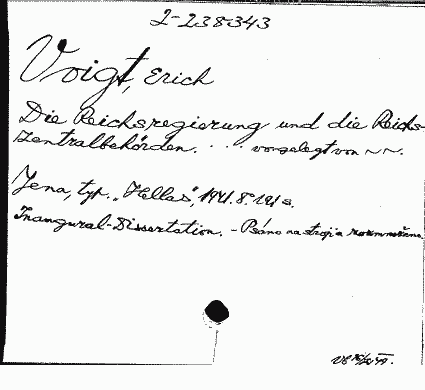 2-238343
Voigt, Erich
Die Reichsregierung und die Reichs-
zentralbehörden. ... vorgelegt von ~~.
Jena, typ. „Hellas", 1941. 8°. 121 s.
Inaugural-Dissertation. - Psáno na stroji a rozmnoženo